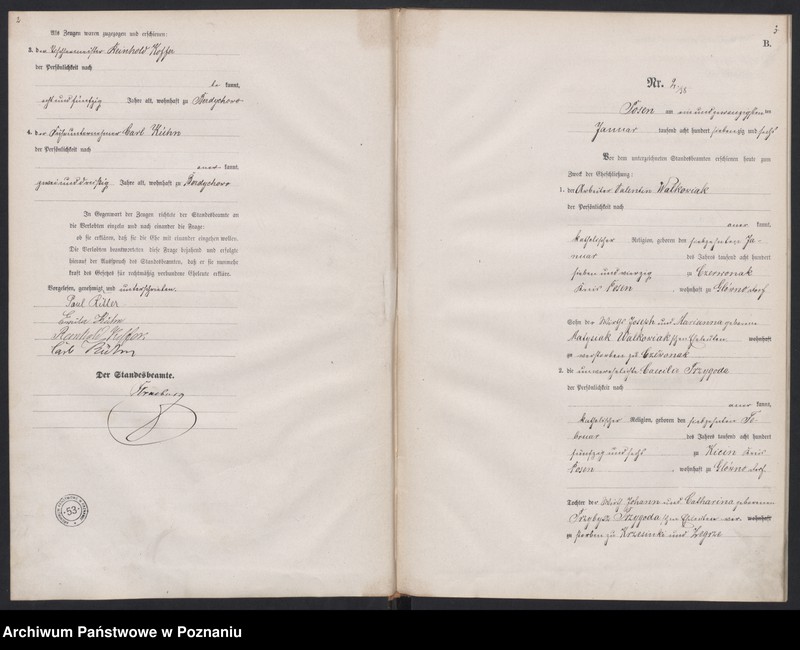 Als Zeugen waren zugezogen und erschienen:
3. der Tischlermeister Reinhold Koffer
der Persönlichkeit nach
be kannt,
acht und fünfzig Jahre alt, wohnhaft zu Berdychowo
4. der Carl Kühn
der Persönlichkeit nach
kannt,
zwei und dreißig Jahre alt, wohnhaft zu Berdychowo
In Gegenwart der Zeugen richtete der Standesbeamte an
die Verlobten einzeln und nach einander die Frage:
ob sie erklären, daß sie die Ehe mit einander eingehen wollen.
Die Verlobten beantworteten diese Frage bejahend und erfolgte
hierauf der Ausspruch des Standesbeamten, daß er sie nunmehr
kraft des Gesetzes für rechtmäßig verbundene Eheleute erkläre.
Vorgelesen, genehmigt und unterschrieben.
Paul Ritter
Kühn
Reinhold Koffer
Carl Kühn
Der Standesbeamte.
53
3
B.
Nr. 2
Posen am ein und zwanzigsten
Januar tausend acht hundert siebenzig und sechs
Vor dem unterzeichneten Standesbeamten erschienen heute zum
Zweck der Eheschließung:
1. der Arbeiter Valentin Walkowiak
der Persönlichkeit nach
kannt,
katholischer Religion, geboren den siebzehnten Ja-
nuar des Jahres tausend acht hundert
sieben und vierzig zu Czerwonak
Kreis Posen, wohnhaft zu Glowno dorf
Sohn der Joseph und Marianna geborene
Walkowiak'schen Eheleuten wohnhaft
zu verstorben zu Czerwonak
2. die unverehelichte Caecilia Przygoda
der Persönlichkeit nach
kannt,
katholischer Religion, geboren den siebzehnten Fe-
bruar des Jahres tausend acht hundert
fünfzig und sechs zu Kicin Kreis
Posen, wohnhaft zu Glowno dorf
Tochter der Johann und Catharina geborenen
Przygoda'schen Eheleuten ver- wohnhaft
zu storben zu und Zegrze
Archiwum Państwowe w Poznaniu